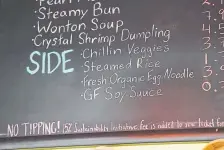 Steamy Bun
Wonton Soup
Crystal Shrimp Dumpling
SIDE
Chillin Veggies
Steamed Rice
Fresh Organic Egg Noodle
GF Soy Sauce
NO TIPPING! 15% Sustainability Initiative Fee is added to your ticket for